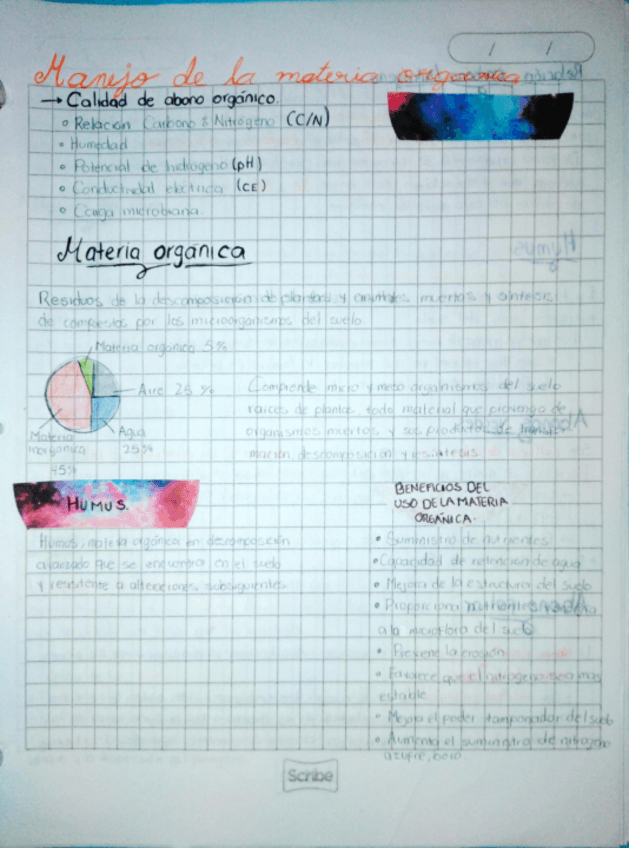 Manejo de la materia organica
→ Calidad de abono orgánico.
• Relación Carbono : Nitrógeno (C/N)
• Humedad
• Potencial de hidrogeno (pH)
• Conductividad eléctrica (CE)
• Carga microbiana.
Materia orgánica
Residuos de la descomposición de plantas y animales muertos y sintesis
de compuestos por los microorganismos del suelo
Materia orgánica 5%
Aire 25 %
Agua
25%
Materia
inorganica
45%
Comprende micro y meso organismos del suelo
raíces de plantas, todo material que provenga de
organismos muertos y sus productos de transfor
mación, descomposición y resintesis
HUMUS.
Humus, materia orgánica en descomposición
avanzado que se encuentra en el suelo
y resistente a alteraciones subsiguientes
BENEFICIOS DEL
USO DE LA MATERIA
ORGÁNICA.
• Suministro de nutrientes
• Capacidad de retención de agua
• Mejora de la estructura del suelo
• Proporciona nutrientes
a la microflora del suelo
• Previene la erosión
• Favorece que el nitrógeno sea mas
estable
• Mejora el poder tamponador del suelo
• Aumenta el suministro de nitrogeno
azufre, boro
Scribe